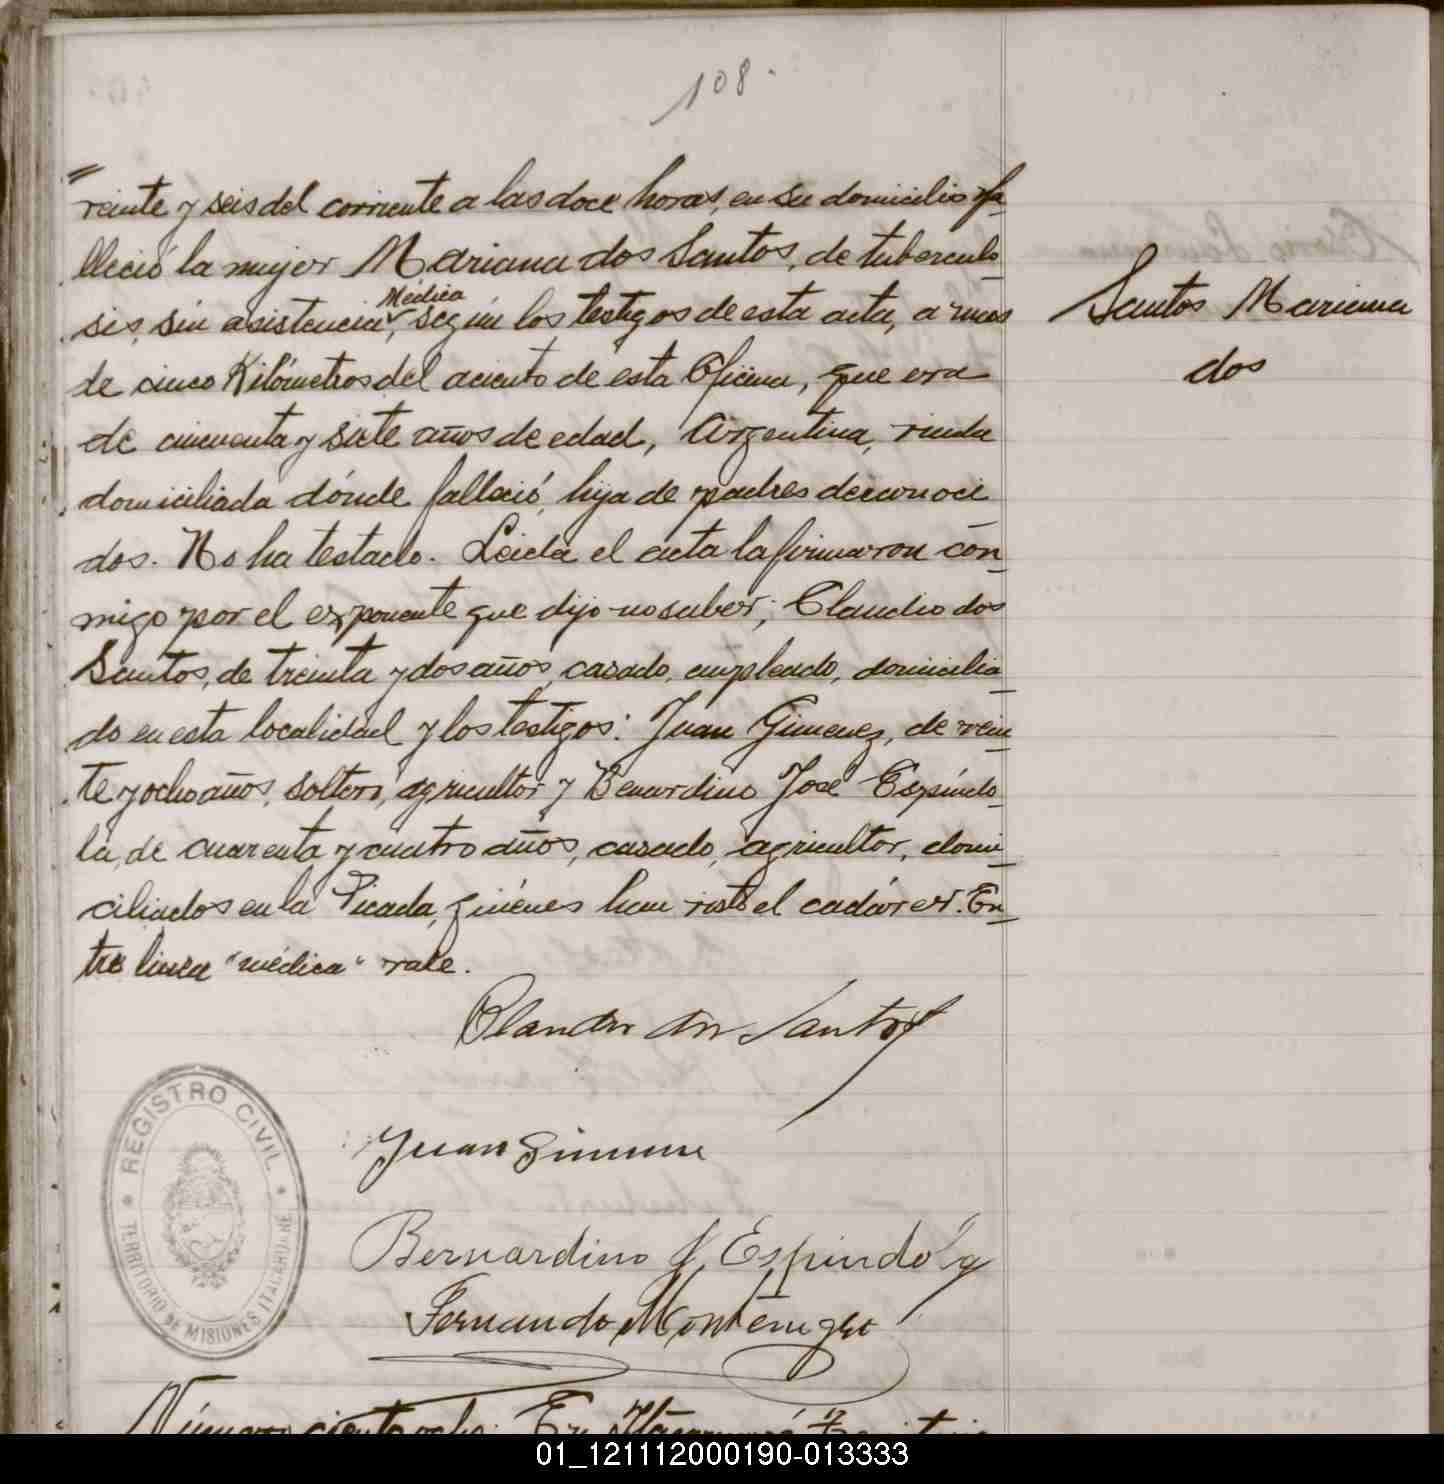 108.
veinte y seis del corriente a las doce horas, en su domicilio fa-
lleció la mujer Mariana dos Santos, de tuberculo-
Médica
sis, sin asistencia, según los testigos de esta acta, a mas
de cinco Kilómetros del aciento de esta Oficina, que era
de cincuenta y siete años de edad, Argentina, viuda
domiciliada dónde falleció, hija de padres desconoci-
dos. No ha testado. Leida el acta la firmaron con-
migo por el exponente que dijo no saber; Claudio dos
Santos, de treinta y dos años, casado, empleado, domicilia-
do en esta localidad y los testigos: Juan Gimenez, de vein-
te y ocho años, soltero, agricultor y Bernardino José Espíndo-
la, de cuarenta y cuatro años, casado, agricultor, domi-
ciliados en la Picada, quiénes han visto el cadáver. En-
tre linea "médica" vale.
Santos Mariana
dos
Claudio dos Santos
Juan Gimenez
Bernardino J. Espindóla
Fernando Montenegro
REGISTRO CIVIL
TERRITORIO DE MISIONES ITACARUARÉ
Número ciento ocho: En Itacaruaré
01_121112000190-013333